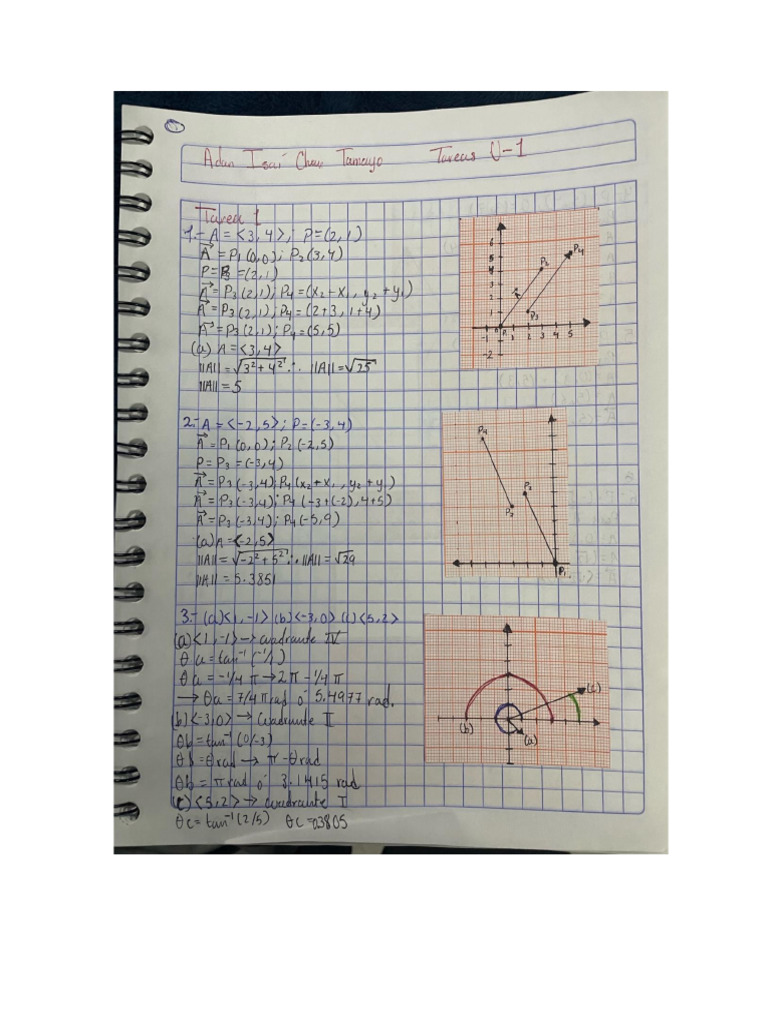 Adan Isai Chan Tamayo Tareas U-1
Tarea 1
1.- A = <3,4>; P=(2,1)
A⃗ = P₁(0,0); P₂(3,4)
P = P₃ =(2,1)
A⃗ = P₃(2,1); P₄=(x₂-x₁, y₂+y₁)
A⃗ = P₃(2,1); P₄=(2+3, 1+4)
A⃗ = P₃(2,1); P₄=(5,5)
(a) A = <3,4>
||A|| = √3²+4² ∴ ||A|| = √25
||A|| = 5
6
5
4
3
2
1
-1 P₁ 1 2 3 4 5
-2
P₂
P₄
A⃗
P₃
2.- A = <-2,5>; P=(-3,4)
A⃗ = P₁(0,0); P₂(-2,5)
P = P₃ = (-3,4)
A⃗ = P₃(-3,4); P₄(x₂+x₁, y₂+y₁)
A⃗ = P₃(-3,4); P₄(-3+(-2), 4+5)
A⃗ = P₃(-3,4); P₄(-5,9)
(a) A = <-2,5>
||A|| = √-2²+5² ∴ ||A|| = √29
||A|| = 5.3851
P₄
P₂
P₃
P₁
3.- (a)<1,-1> (b)<-3,0> (c)<5,2>
(a)<1,-1> → cuadrante IV
θa = tan⁻¹(-1/1)
θa = -1/4 π → 2π - 1/4 π
→ θa = 7/4 π rad ó 5.4977 rad.
(b)<-3,0> → cuadrante I
θb = tan⁻¹(0/-3)
θb = θrad → π - θrad
θb = π rad ó 3.1415 rad
(c)<5,2> → cuadrante I
θc = tan⁻¹(2/5) θc = 0.3805
(c)
(b)
(a)